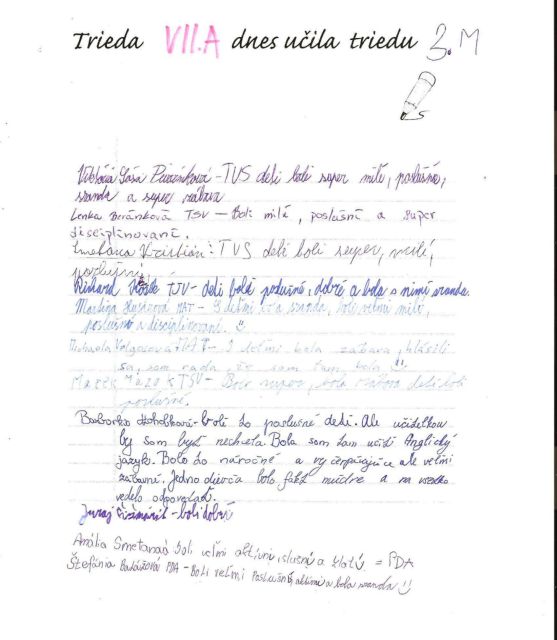 Trieda VII.A dnes učila triedu 3.M
Viktória Sára - TVS deti boli super milé, poslušné,
sranda a super zábava
Lenka Beránková TSV - Boli milé, poslušné a super
disciplinované.
Smetana Kristián: TVS deti boli super, milí,
poslušní
Richard TSV - deti bolá poslušné, dobré a bola s nimi sranda.
Martina MAT - S deťmi bola sranda, boli veľmi milé,
poslušné a disciplinované. ☺
Michaela MAT - S deťmi bola zábava, hlásili
sa, som rada, že som tam bola ☺
Marek TSV - Boli super, bola sranda deti boli
poslušné.
Barborka - boli to poslušné deti. Ale učiteľkou
by som byť nechcela. Bola som tam učiť Anglický
jazyk. Bolo to náročné a vyčerpávajúce ale veľmi
zábavné. Jedno dievča bolo fakt múdre a na všetko
vedelo odpovedať.
Juraj - boli dobrí
Amália Smetanaá boli veľmi aktívni, slušní a zlatý = PDA
Štefánia Balážová PDA - Boli veľmi poslušní, aktívni a bola sranda ☺